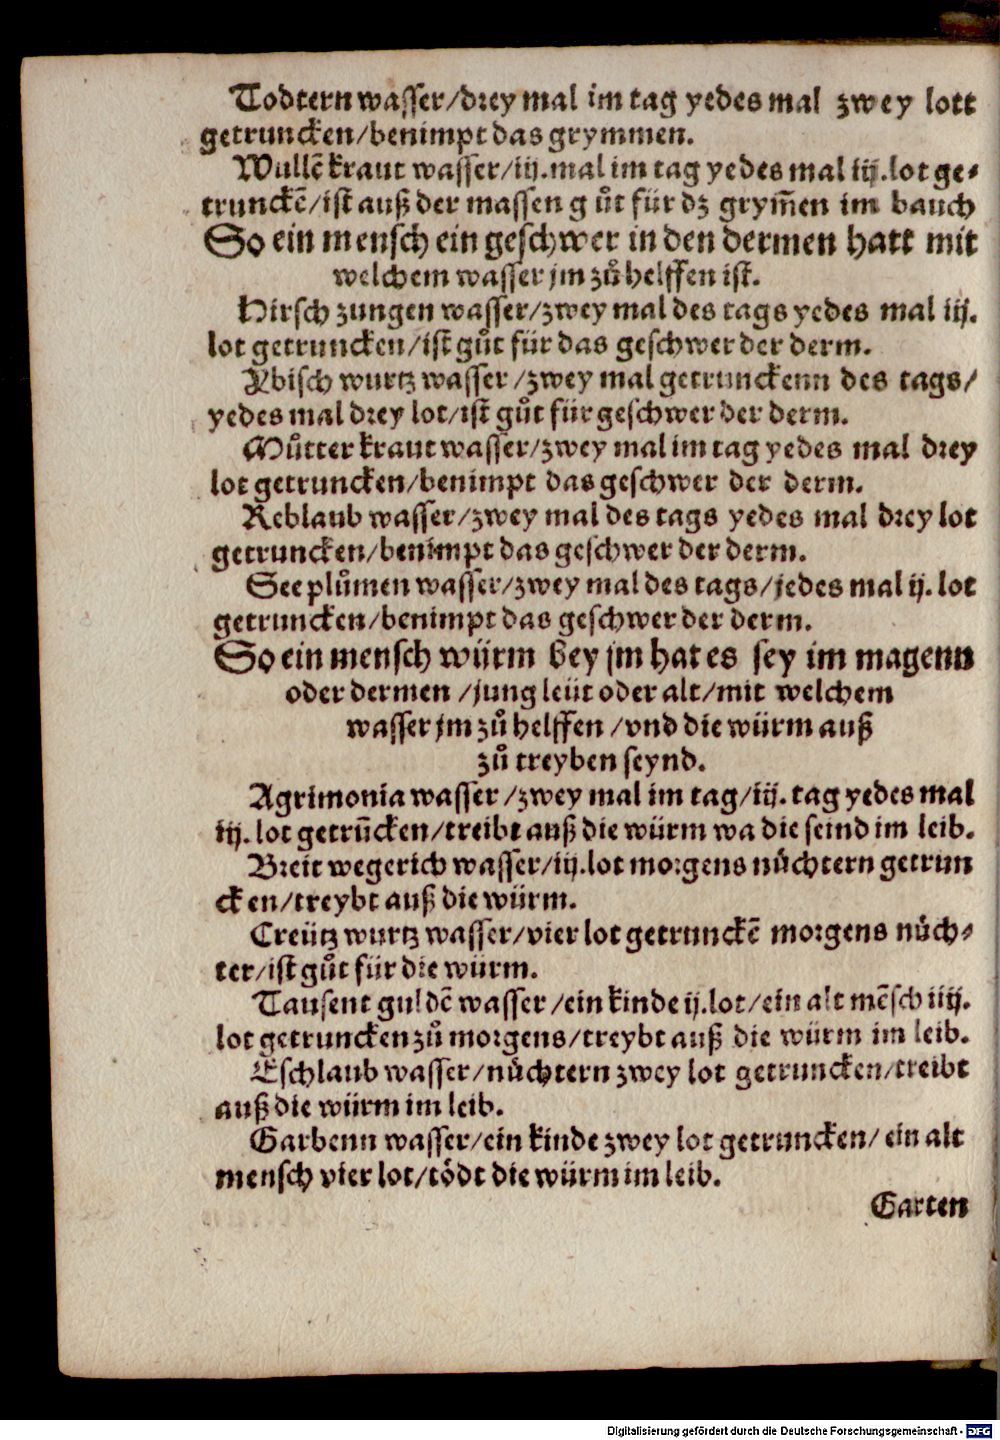 Todtern wasser/drey mal im tag yedes mal zwey lott
getruncken/benimpt das grymmen.
Wullē kraut wasser/iij.mal im tag yedes mal iij.lot ge-
trunckē/ist auß der massen gůt für dz grym̄en im bauch
So ein mensch ein geschwer in den dermen hatt mit
welchem wasser jm zů helffen ist.
Hirsch zungen wasser/zwey mal des tags yedes mal iij.
lot getruncken/ist gůt für das geschwer der derm.
Ybisch wurtz wasser/zwey mal getrunckenn des tags/
yedes mal drey lot/ist gůt für geschwer der derm.
Můtter kraut wasser/zwey mal im tag yedes mal drey
lot getruncken/benimpt das geschwer der derm.
Reblaub wasser/zwey mal des tags yedes mal drey lot
getruncken/benimpt das geschwer der derm.
See plůmen wasser/zwey mal des tags/jedes mal ij. lot
getruncken/benimpt das geschwer der derm.
So ein mensch würm bey jm hat es sey im magenn
oder dermen/jung leüt oder alt/mit welchem
wasser jm zů helffen/vnd die würm auß
zů treyben seynd.
Agrimonia wasser/zwey mal im tag/iij. tag yedes mal
iij. lot getrūcken/treibt auß die würm wa die seind im leib.
Breit wegerich wasser/iij.lot morgens nůchtern getrun
cken/treybt auß die würm.
Creütz wurtz wasser/vier lot getrunckē morgens nůch-
ter/ist gůt für die würm.
Tausent guldē wasser/ein kinde ij.lot/ein alt mēsch iiij.
lot getruncken zů morgens/treybt auß die würm im leib.
Eschlaub wasser/nůchtern zwey lot getruncken/treibt
auß die würm im leib.
Garbenn wasser/ein kinde zwey lot getruncken/ein alt
mensch vier lot/tödt die würm im leib.
Garten
Digitalisierung gefördert durch die Deutsche Forschungsgemeinschaft - DFG